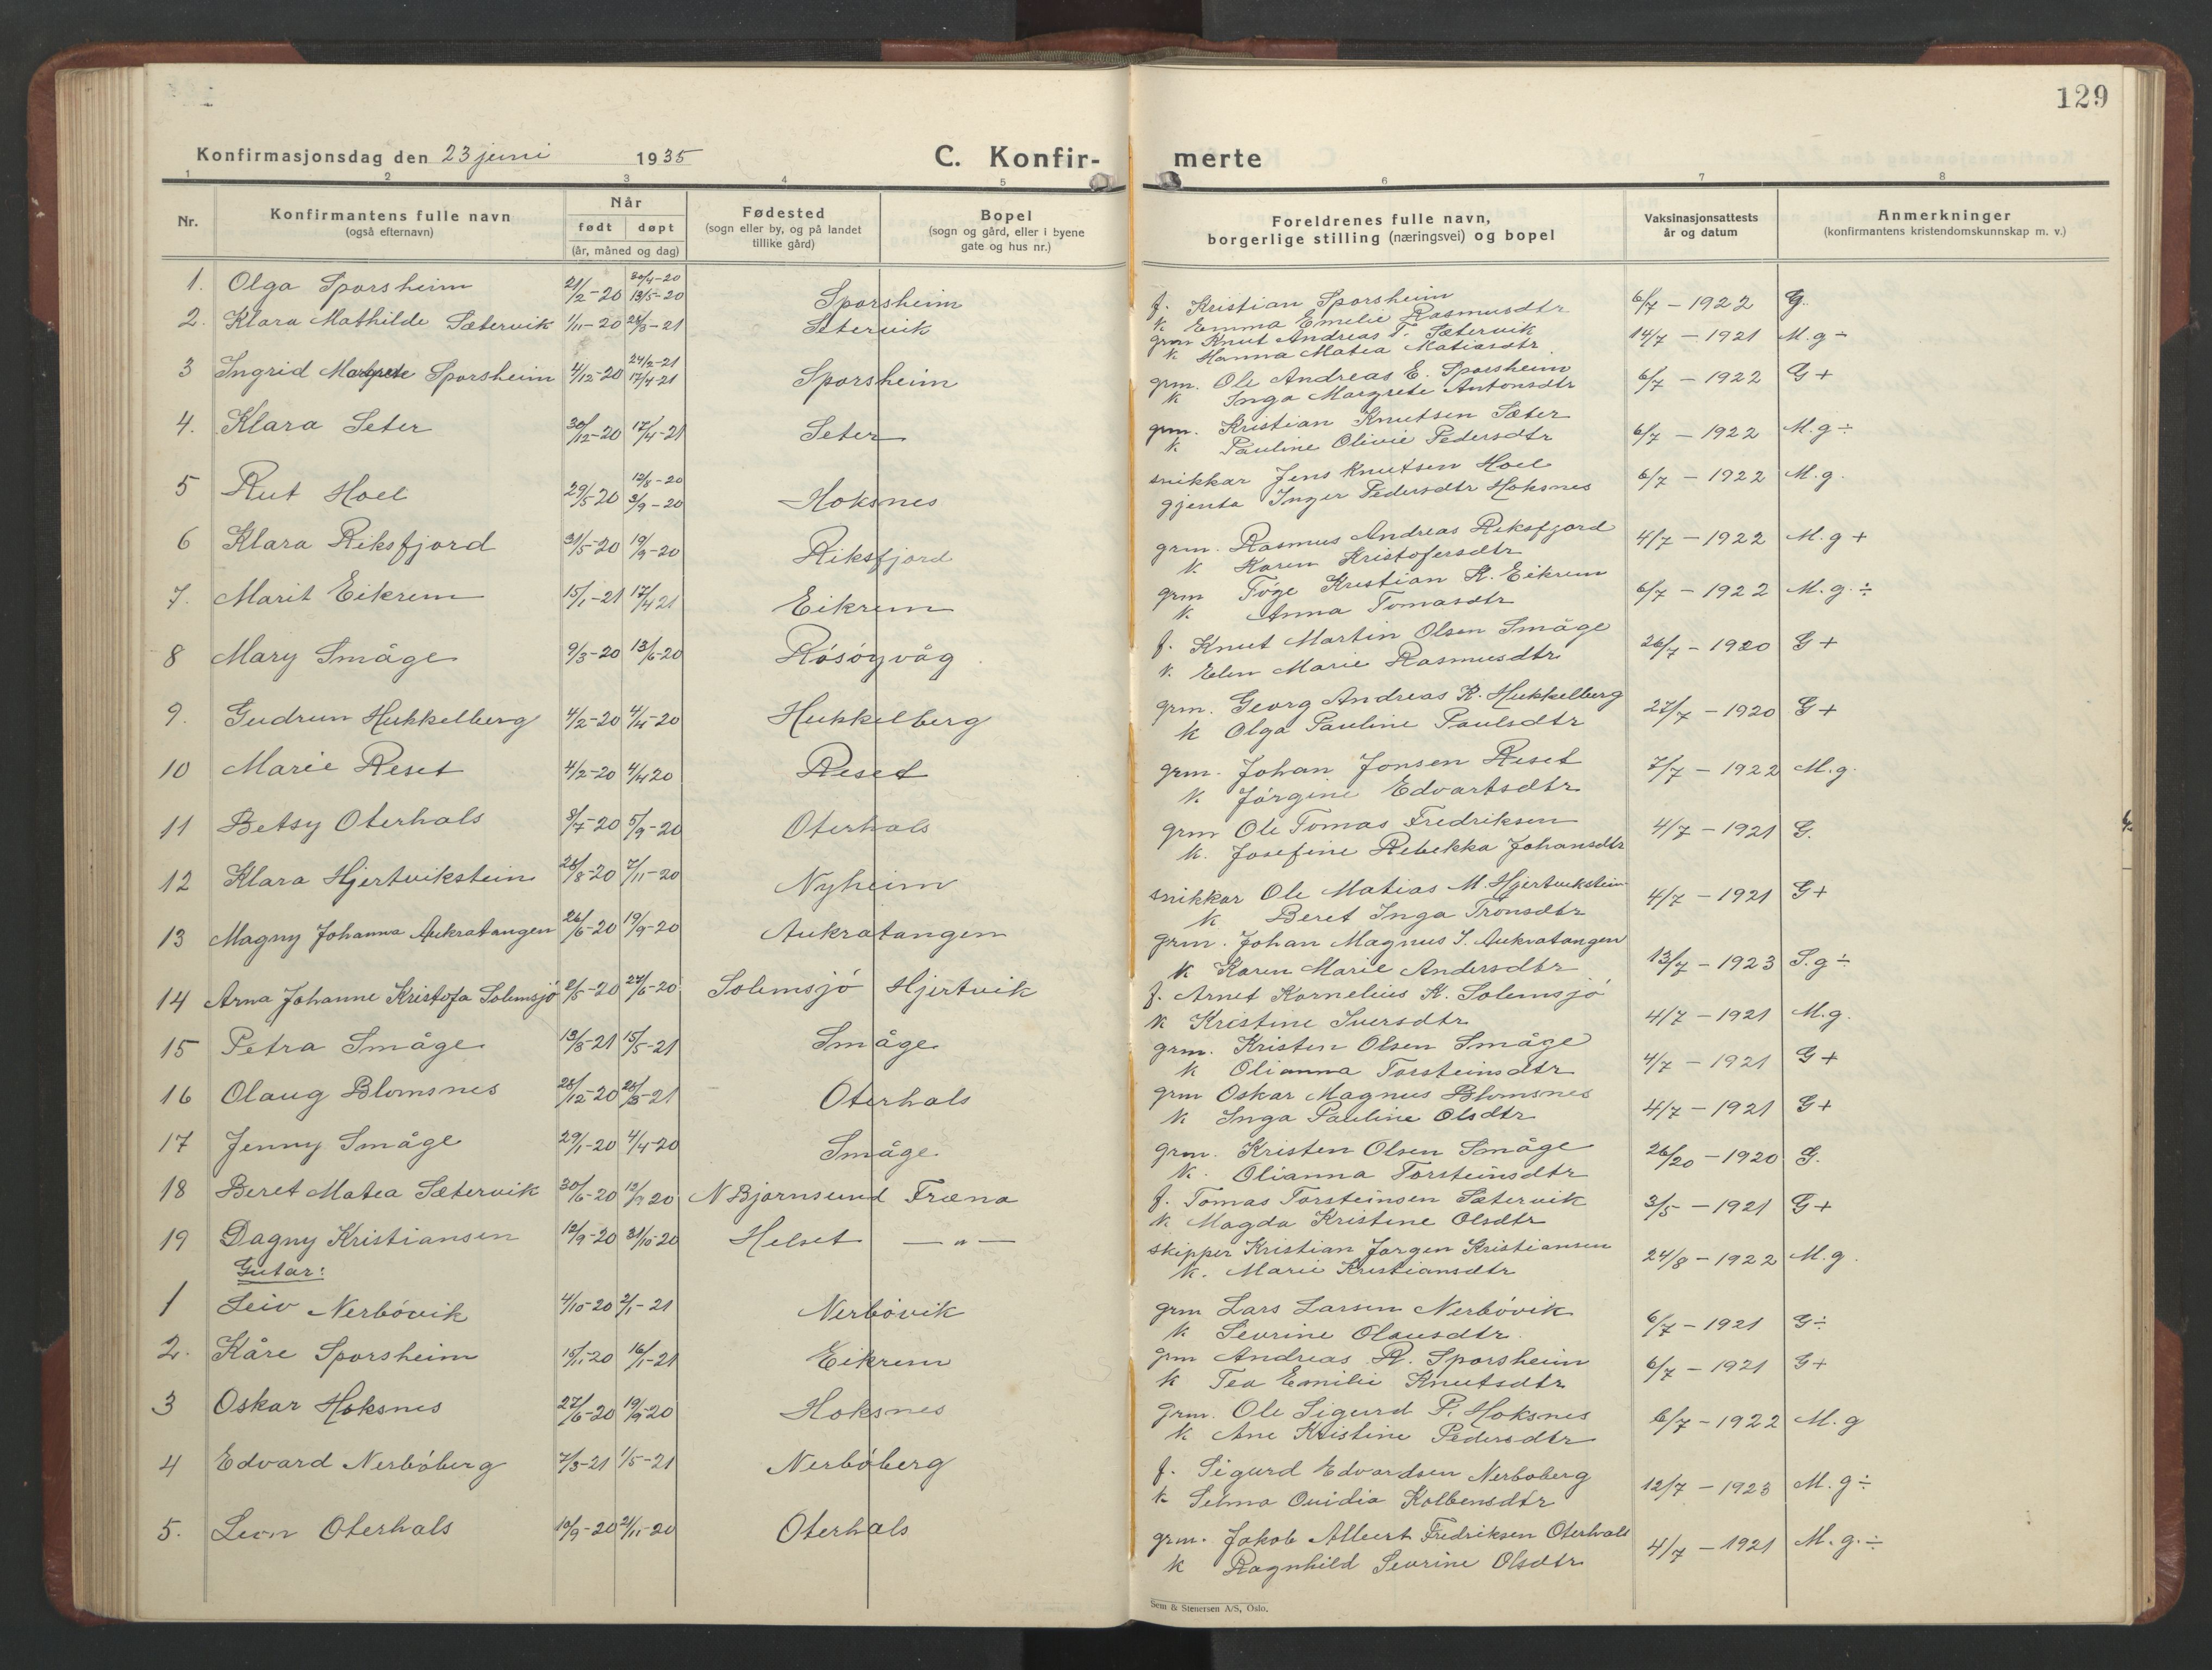 129
Konfirmasjonsdag den 23 juni 1935 C. Konfir- merte
1 2 3 4 5 6 7 8
Nr. Konfirmantens fulle navn (også efternavn) Når født døpt (år, måned og dag) Fødested (sogn eller by, og på landet tillike gård) Bopel (sogn og gård, eller i byene gate og hus nr.) Foreldrenes fulle navn, borgerlige stilling (næringsvei) og bopel Vaksinasjonsattests år og datum Anmerkninger (konfirmantens kristendomskunnskap m. v.)
1. Olga Sporsheim 21/2-20 30/4-20 13/5-20 Sporsheim f. Kristian Sporsheim k Emma Emelie Rasmusdtr 6/7 - 1922 G.
2. Klara Mathilde Sætervik 1/11-20 28/3-21 Setervik grm Knut Andreas T. Sætervik k. Hanna Matea Matiasdtr. 14/7 - 1921 M.g ÷
3 Ingrid Margrete Sporsheim 4/12-20 24/2-21 17/4-21 Sporsheim grm. Ole Andreas E. Sporsheim k Inga Margrete Antonsdtr 6/7 - 1922 G +
4. Klara Seter 30/12-20 17/4-21 Seter grm. Kristian Knutsen Sæter k. Pauline Olivie Pedersdtr 6/7 - 1922 M.g ÷
5 Rut Hoel 29/5-20 12/8-20 3/9-20 Hoksnes snikkar Jens Knutsen Hoel gjenta Inger Pedersdtr Hoksnes 6/7 - 1922 M.g.
6 Klara Riksfjord 31/5-20 19/9-20 Riksfjord grm. Rasmus Andreas Riksfjord k. Karen Kristofersdtr 4/7 - 1922 M.g +
7. Marit Eikrem 15/1-21 17/4 21 Eikrem grm Tøge Kristian K. Eikrem k. Anna Tomasdtr 6/7 - 1922 M.g. ÷
8 Mary Småge 9/3-20 13/6-20 Røsøyvåg f. Knut Martin Olsen Småge k. Elen Marie Rasmusdtr 26/7 - 1920 G +
9. Gudrun Hukkelberg 4/2-20 4/4-20 Hukkelberg grm. Georg Andreas K. Hukkelberg k Olga Pauline Paulsdtr 27/7 - 1920 G +
10 Marie Reset 4/2-20 4/4 20 Reset grm. Johan Jonsen Reset k. Jørgine Edvartsdtr 7/7 - 1922 M.g.
11 Betsy Oterhals 8/7-20 5/9-20 Oterhals grm Ole Tomas Fredriksen k. Josefine Rebekka Johansdtr 4/7 - 1921 G.
12 Klara Hjertvikstein 28/8-20 7/11-20 Nyheim snikkar Ole Matias M. Hjertvikstein k Beret Inga Tronsdtr 4/7 - 1921 G +
13 Magny Johanna Aukratangen 26/6-20 19/9-20 Aukratangen grm. Johan Magnus J. Aukratangen k Karen Marie Andersdtr 13/7 - 1923 S.g ÷
14 Arna Johanne Kristofa Solemsjø 2/5-20 27/6-20 Solemsjø Hjertvik f. Arnet Kornelius K. Solemsjø k Kristine Iversdtr 4/7 - 1921 M.g.
15 Petra Småge 13/3-21 15/5-21 Småge grm. Kristen Olsen Småge k Olianna Torsteinsdtr 4/7 - 1921 G +
16 Olaug Blomsnes 28/12-20 28/3-21 Oterhals grm Oskar Magnus Blomsnes k Inga Pauline Olsdtr 4/7 - 1921 G +
17 Jenny Småge 29/1-20 4/4-20 Småge grm. Kristen Olsen Småge k. Olianna Torsteinsdtr 26/20 - 1920 G.
18 Beret Matea Sætervik 30/6-20 12/9 20 N Bjørnsund Fræna f. Tomas Torsteinsen Sætervik k. Magda Kristine Olsdtr 3/5 - 1921 G +
19 Dagny Kristiansen 12/9-20 31/10-20 Helset — " — skipper Kristian Jørgen Kristiansen k. Marie Kristiansdtr 24/8 - 1922 M.g.
Gutar:
1 Leiv Nerbøvik 4/10-20 2/1-21 Nerbøvik grm Lars Larsen Nerbøvik k Sevrine Olausdtr. 6/7 - 1921 G ÷
2. Kåre Sporsheim 15/11-20 16/1-21 Eikrem grm Andreas R. Sporsheim k Tea Emilie Knutsdtr 6/7 - 1921 G +
3 Oskar Hoksnes 27/6-20 19/9-20 Hoksnes grm. Ole Sigurd P. Hoksnes k Ane Kristine Pedersdtr 6/7 - 1922 M.g
4 Edvard Nerbøberg 7/3-21 1/5-21 Nerbøberg f. Sigurd Edvardsen Nerbøberg k Selma Ovidia Kolbensdtr 12/7 - 1923 M.g ÷
5. Leon Oterhals 10/9-20 21/11-20 Oterhals grm. Jakob Albert Fredriksen Oterhals k Ragnhild Sevrine Olsdtr 4/7 - 1921 M.g. ÷
Sem & Stenersen A/S, Oslo.